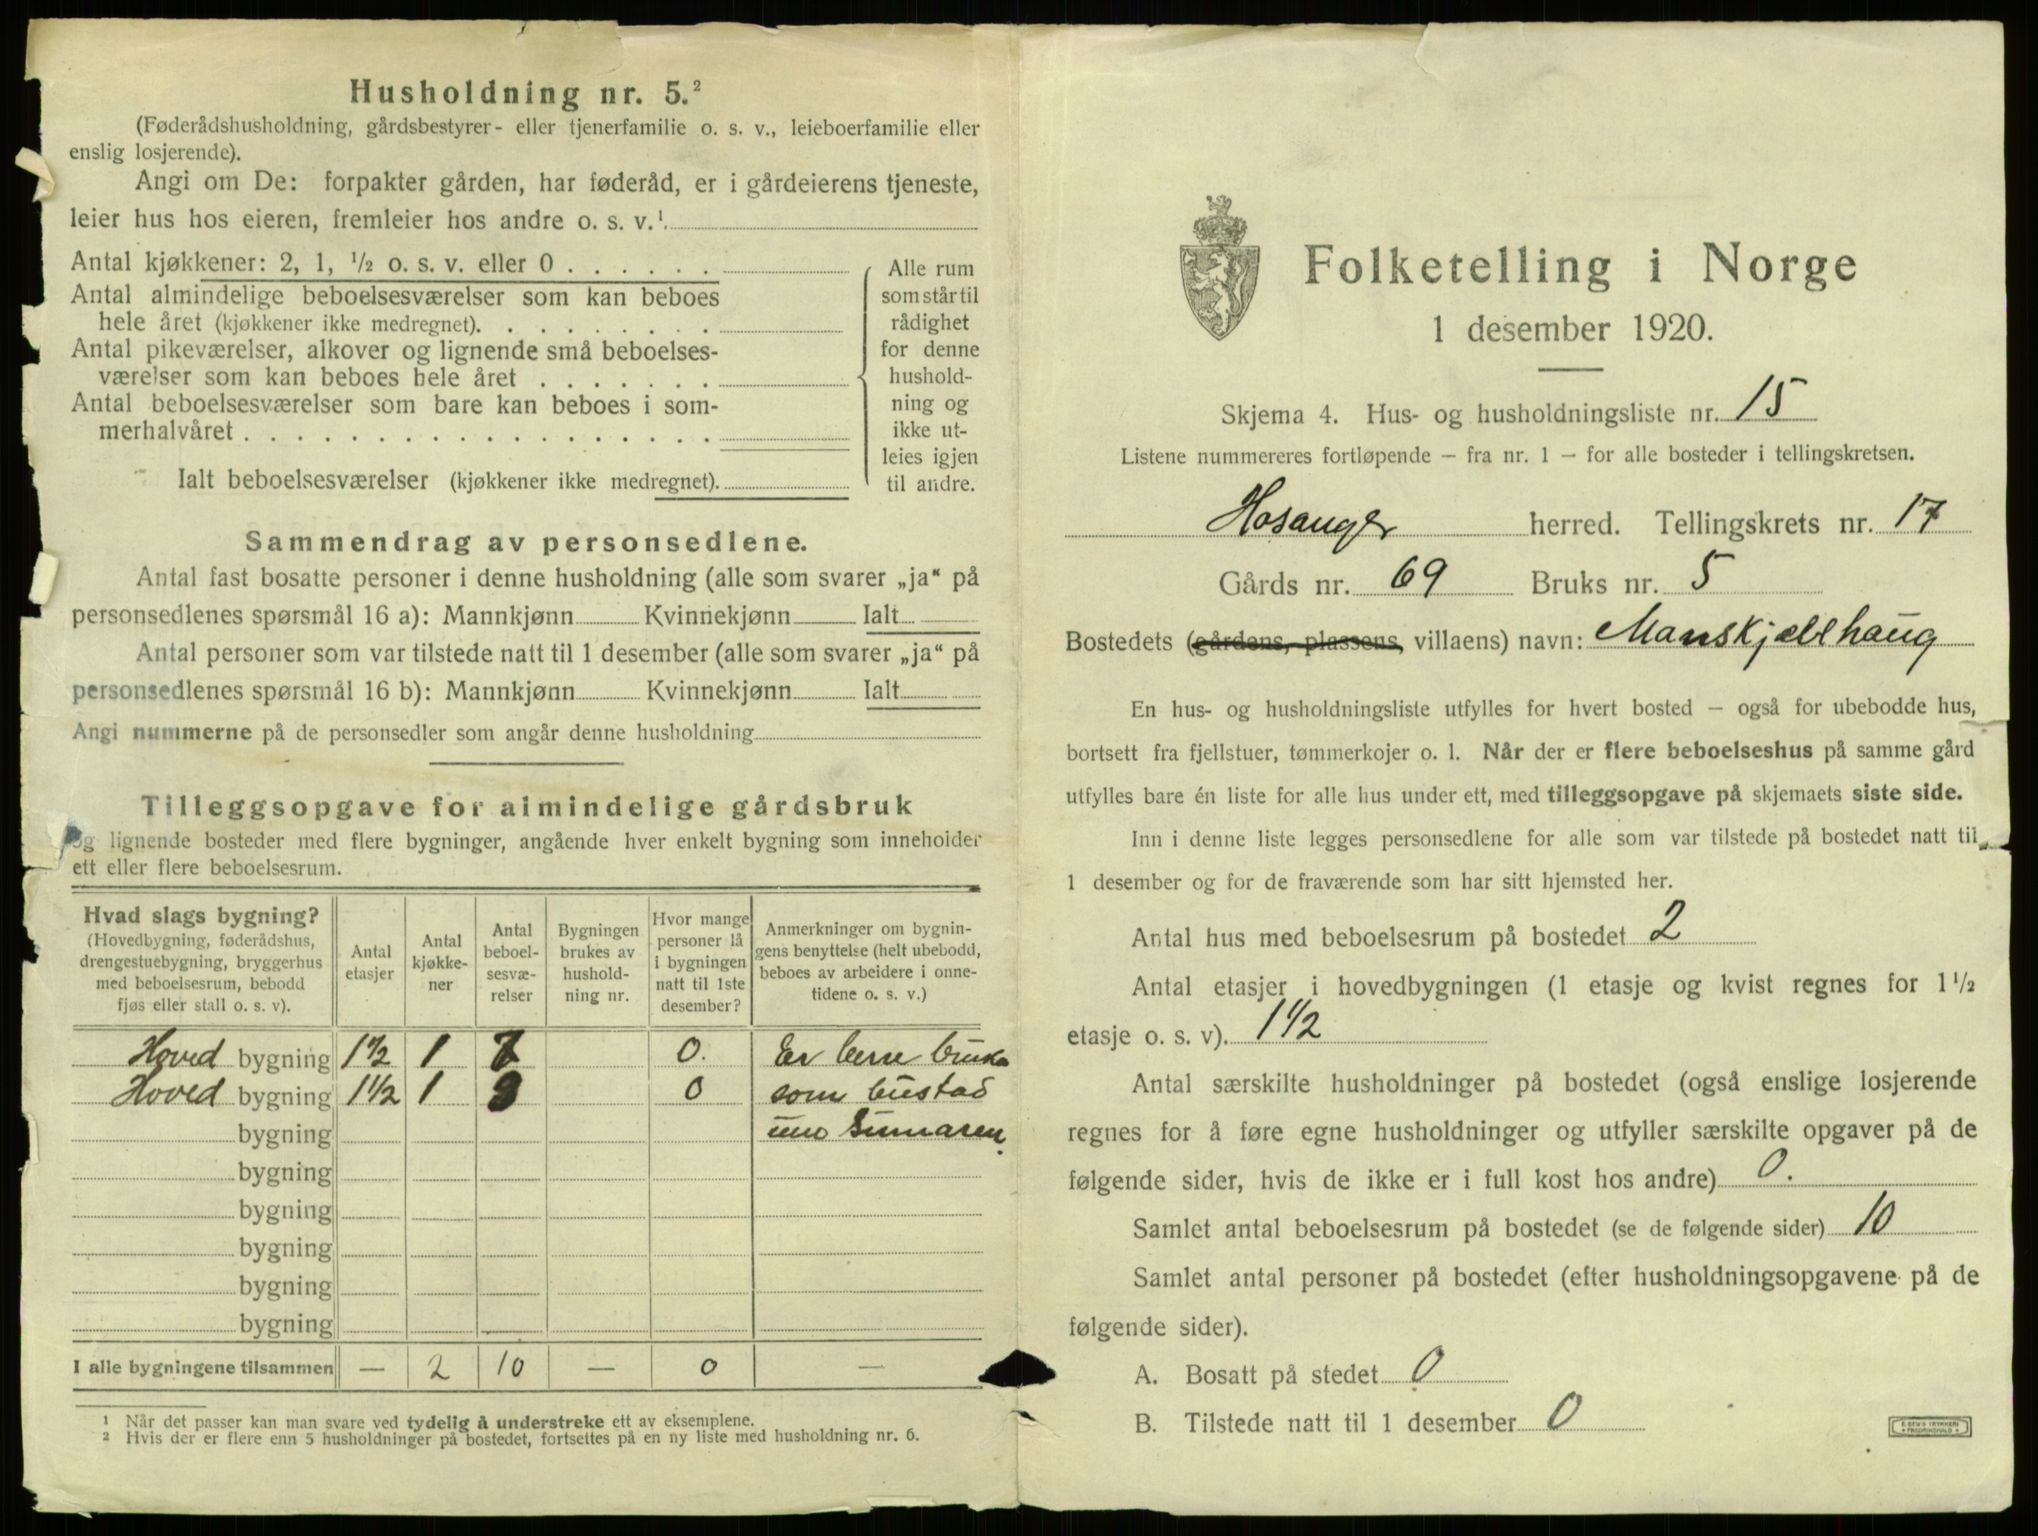 Husholdning nr. 5.²
(Føderådshusholdning, gårdsbestyrer- eller tjenerfamilie o. s. v., leieboerfamilie eller
enslig losjerende).
Angi om De: forpakter gården, har føderåd, er i gårdeierens tjeneste,
leier hus hos eieren, fremleier hos andre o. s. v.¹.
Antal kjøkkener: 2, 1, ½ o. s. v. eller 0 . . . . . .
Antal almindelige beboelsesværelser som kan beboes
hele året (kjøkkener ikke medregnet). . . . . . . . .
Antal pikeværelser, alkover og lignende små beboelses-
værelser som kan beboes hele året . . . . . . .
Antal beboelsesværelser som bare kan beboes i som-
merhalvåret . . . . . . . . . . . . . . . . .
Ialt beboelsesværelser (kjøkkener ikke medregnet).
Alle rum
som står til
rådighet
for denne
hushold-
ning og
ikke ut-
leies igjen
til andre.
Sammendrag av personsedlene.
Antal fast bosatte personer i denne husholdning (alle som svarer „ja“ på
personsedlenes spørsmål 16 a): Mannkjønn Kvinnekjønn Ialt
Antal personer som var tilstede natt til 1 desember (alle som svarer „ja“ på
personsedlenes spørsmål 16 b): Mannkjønn Kvinnekjønn Ialt
Angi nummerne på de personsedler som angår denne husholdning
Tilleggsopgave for almindelige gårdsbruk
og lignende bosteder med flere bygninger, angående hver enkelt bygning som inneholder
ett eller flere beboelsesrum.
Hvad slags bygning?
(Hovedbygning, føderådshus,
drengestuebygning, bryggerhus
med beboelsesrum, bebodd
fjøs eller stall o. s. v).
Antal
etasjer
Antal
kjøkke-
ner
Antal
beboel-
sesvæ-
relser
Bygningen
brukes av
hushold-
ning nr.
Hvor mange
personer lå
i bygningen
natt til 1ste
desember?
Anmerkninger om bygnin-
gens benyttelse (helt ubebodd,
beboes av arbeidere i onne-
tidene o. s. v.)
Hoved bygning 1½ 1 7 0. Er berre bruka
Hoved bygning 1½ 1 3 0 som bustad
bygning um Sumaren.
bygning
bygning
bygning
bygning
bygning
I alle bygningene tilsammen — 2 10 — 0 —
¹ Når det passer kan man svare ved tydelig å understreke ett av eksemplene.
² Hvis der er flere enn 5 husholdninger på bostedet, fortsettes på en ny liste med husholdning nr. 6.
Folketelling i Norge
1 desember 1920.
Skjema 4. Hus- og husholdningsliste nr. 15
Listene nummereres fortløpende – fra nr. 1 – for alle bosteder i tellingskretsen.
Hosanger herred. Tellingskrets nr. 17
Gårds nr. 69 Bruks nr. 5
Bostedets (gårdens, plassens, villaens) navn: Manskjælhaug
En hus- og husholdningsliste utfylles for hvert bosted – også for ubebodde hus,
bortsett fra fjellstuer, tømmerkojer o. l. Når der er flere beboelseshus på samme gård
utfylles bare én liste for alle hus under ett, med tilleggsopgave på skjemaets siste side.
Inn i denne liste legges personsedlene for alle som var tilstede på bostedet natt til
1 desember og for de fraværende som har sitt hjemsted her.
Antal hus med beboelsesrum på bostedet 2
Antal etasjer i hovedbygningen (1 etasje og kvist regnes for 1½
etasje o. s. v). 1½
Antal særskilte husholdninger på bostedet (også enslige losjerende
regnes for å føre egne husholdninger og utfyller særskilte opgaver på de
følgende sider, hvis de ikke er i full kost hos andre) 0.
Samlet antal beboelsesrum på bostedet (se de følgende sider) 10
Samlet antal personer på bostedet (efter husholdningsopgavene på de
følgende sider).
A. Bosatt på stedet 0
B. Tilstede natt til 1 desember 0
E. SEM'S TRYKKERI
FREDRIKSHALD